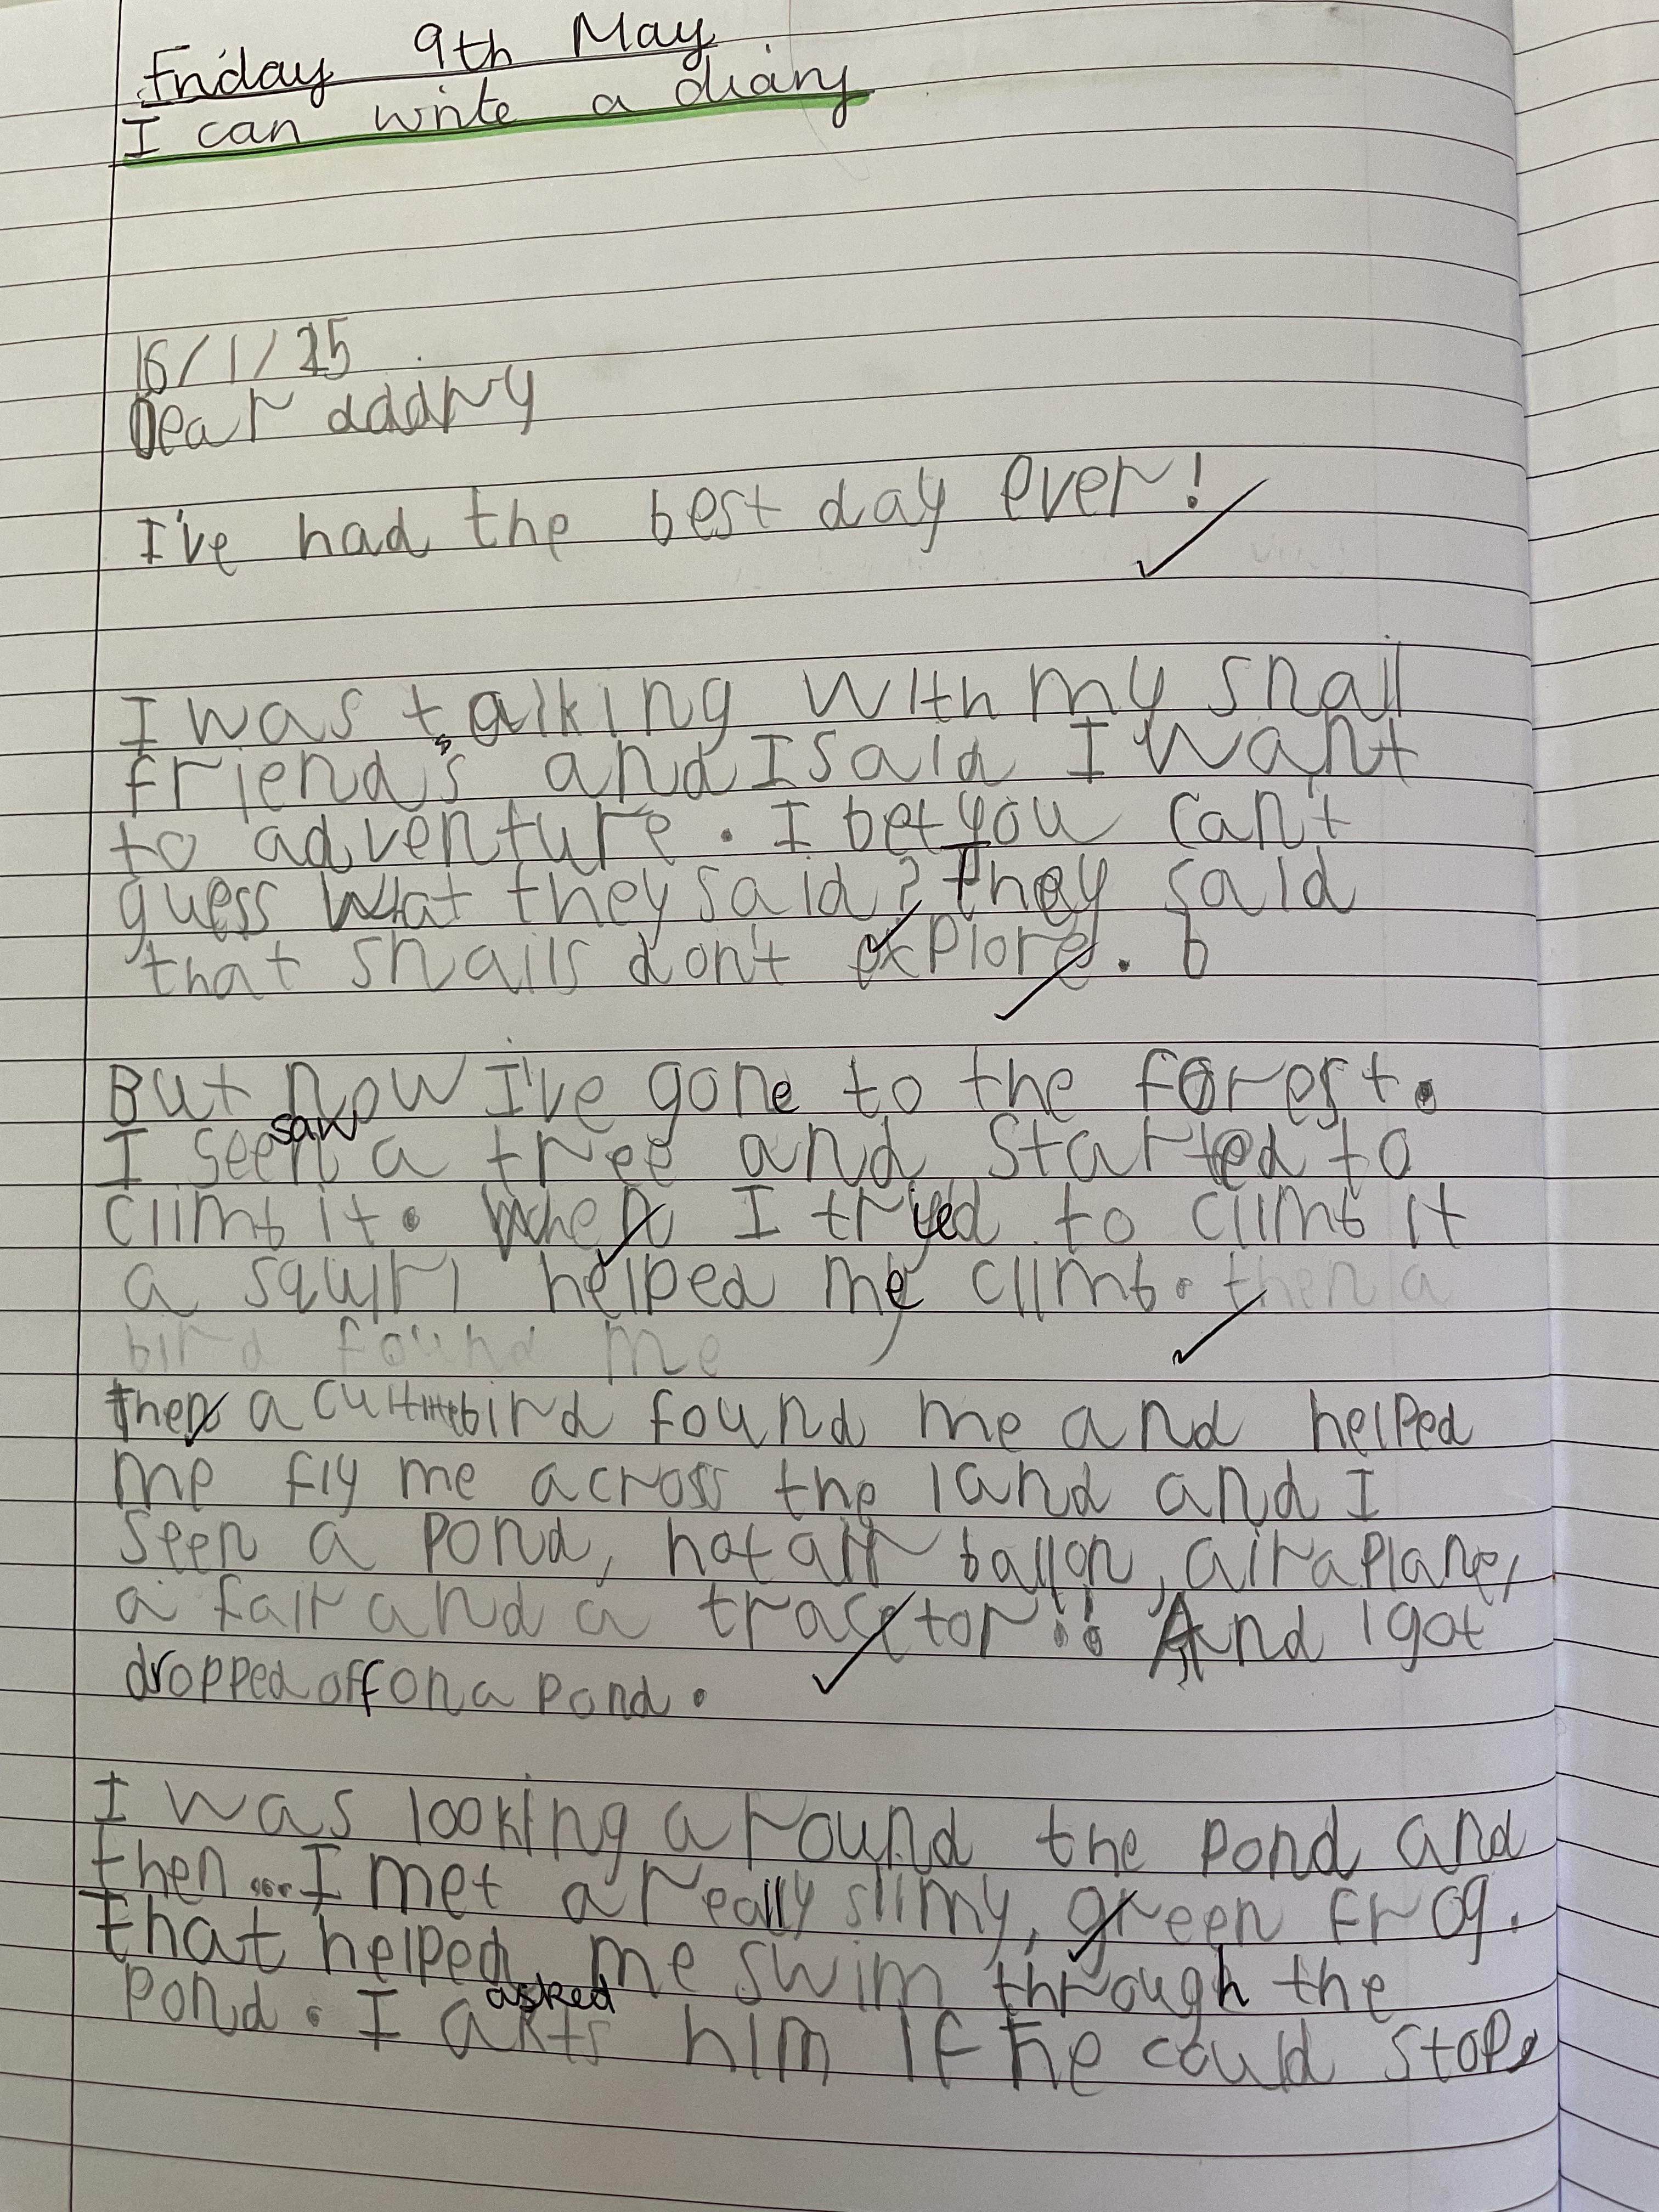 Friday 9th May
I can write a diary
16/1/25
Dear dddry
I've had the best day ever!
I was talking with my snail
friends and I said I want
to adventure. I bet you can't
guess what they said? They said
that snails don't explore. b
But now I've gone to the forest.
saw
I seen a tree and started to
climb it. When I tried to climb it
a squirl helped me climb. then a
bird found me
Then a bird found me and helped
me fly me across the land and I
seen a pond, hot air ballon, airaplane,
a fair and a tractor!! And I got
dropped off on a pond.
I was looking around the pond and
then... I met a really slimy, green frog.
That helped me swim through the
asked
pond. I akts him if he could stop,